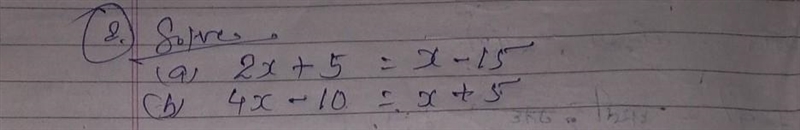 8. Solve.
(a) 2x + 5 = x - 15
(b) 4x - 10 = x + 5